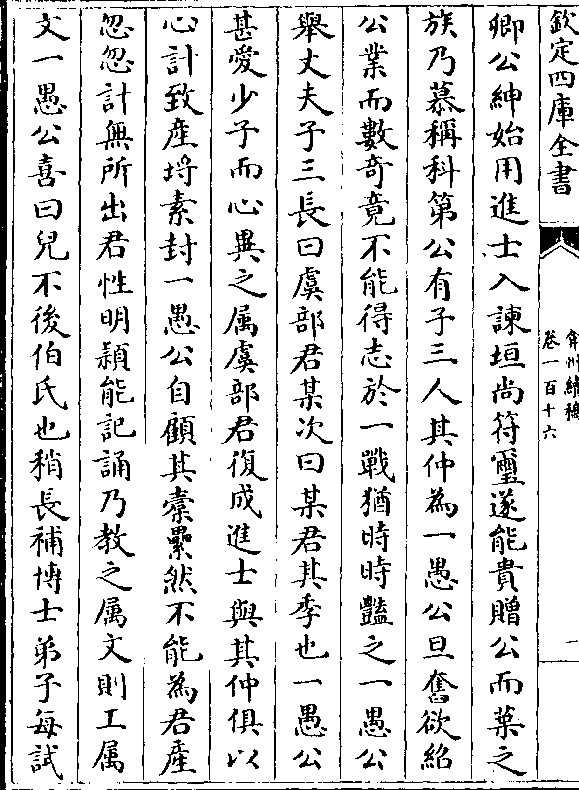 欽定四庫全書
弇州續稿
卷一百十六
一
卿公紳始用進士入諫垣尚符璽遂能貴贈公而葉之
族乃慕稱科第公有子三人其仲為一愚公旦奮欲紹
公業而數奇竟不能得志於一戰猶時時豔之一愚公
舉丈夫子三長曰虞部君某次曰某君其季也一愚公
甚愛少子而心異之属虞部君復成進士與其仲俱以
心計致產埒素封一愚公自顧其橐纍然不能為君產
忽忽計無所出君性明頴能記誦乃教之属文則工属
文一愚公喜曰兒不後伯氏也稍長補博士弟子每試